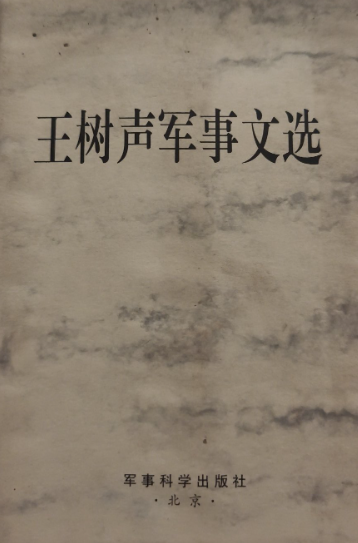 王树声军事文选
军事科学出版社
·北京·